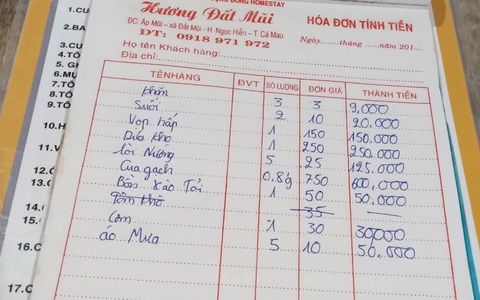 ĐỒNG HOMESTAY
Hương Đất Mũi
HÓA ĐƠN TÍNH TIỀN
ĐC: Ấp Mũi - xã Đất Mũi - H. Ngọc Hiển - T. Cà Mau
ĐT: 0918 971 972
Ngày......tháng ......năm 201....
Họ tên Khách hàng:
Địa chỉ:
TÊN HÀNG ĐVT SỐ LƯỢNG ĐƠN GIÁ THÀNH TIỀN
khăn 3 3 9,000
Suối 2 10 20.000
Vọp hấp 1 150 150.000
Dứa kho 1 250 250.000
Còi Nướng 5 25 125.000
Cua gạch 0.8g 750 600,000
Bồn Xào Tỏi 1 50 50.000
Tôm khô 35
Cơm 1 30 30000
áo Mưa 5 10 50.000
1. CU
2. BA
3. CU
4. TÔ
5. G
6. MỰ
7. TÔ
8. TÔ
9. TÔ
10. H
11. V
14.
15.
16. C
17. C